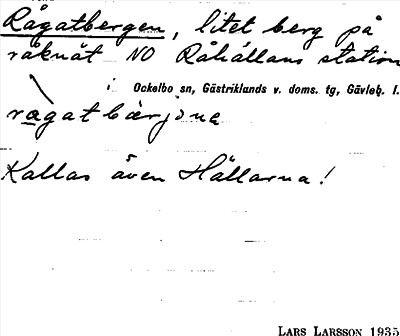 Rågatbergen, litet berg på
råknät NO Råhällans station
i Ockelbo sn, Gästriklands v. doms. tg, Gävleb. l.
ragatbærjɷna
Kallas även Hällarna!
LARS LARSSON 1935